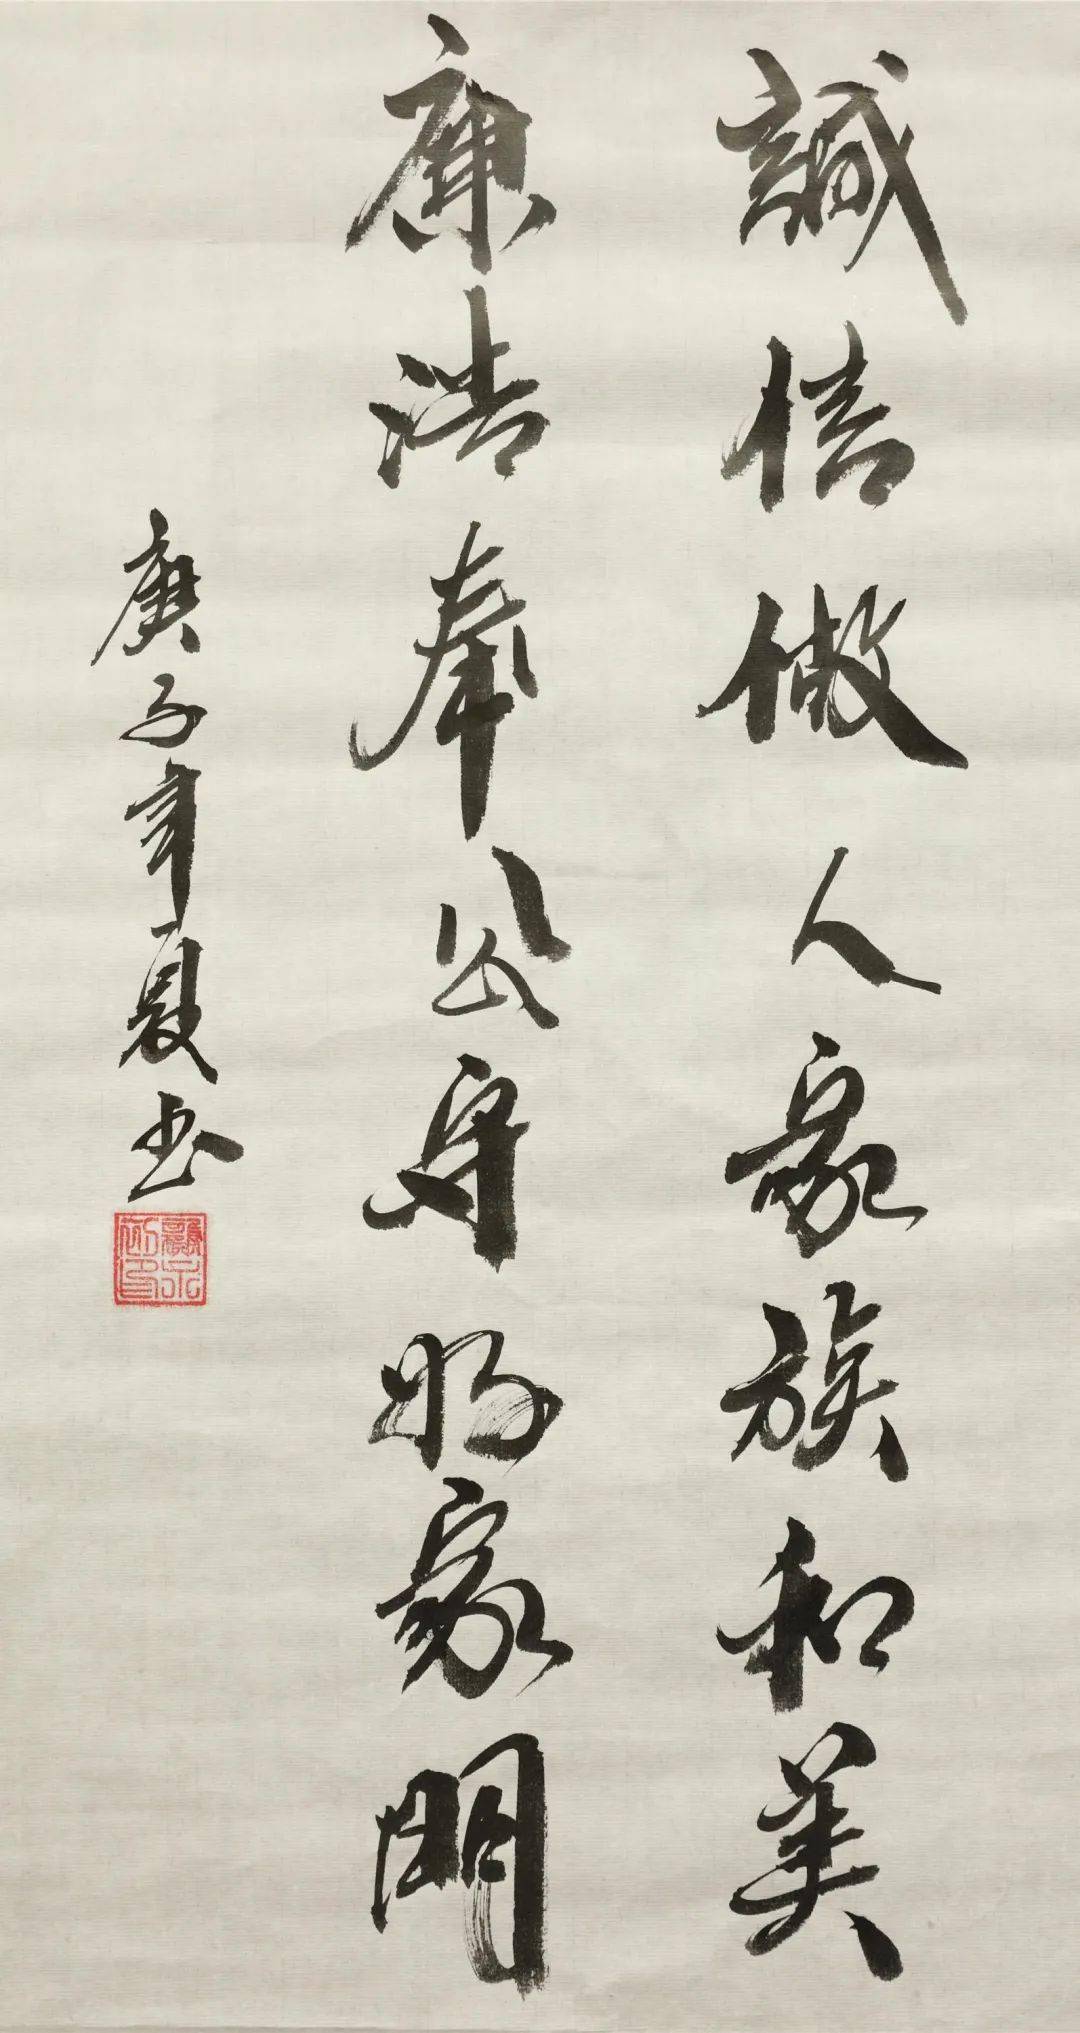 誠信做人家族和美
廉洁奉公守好家門
庚子年夏书